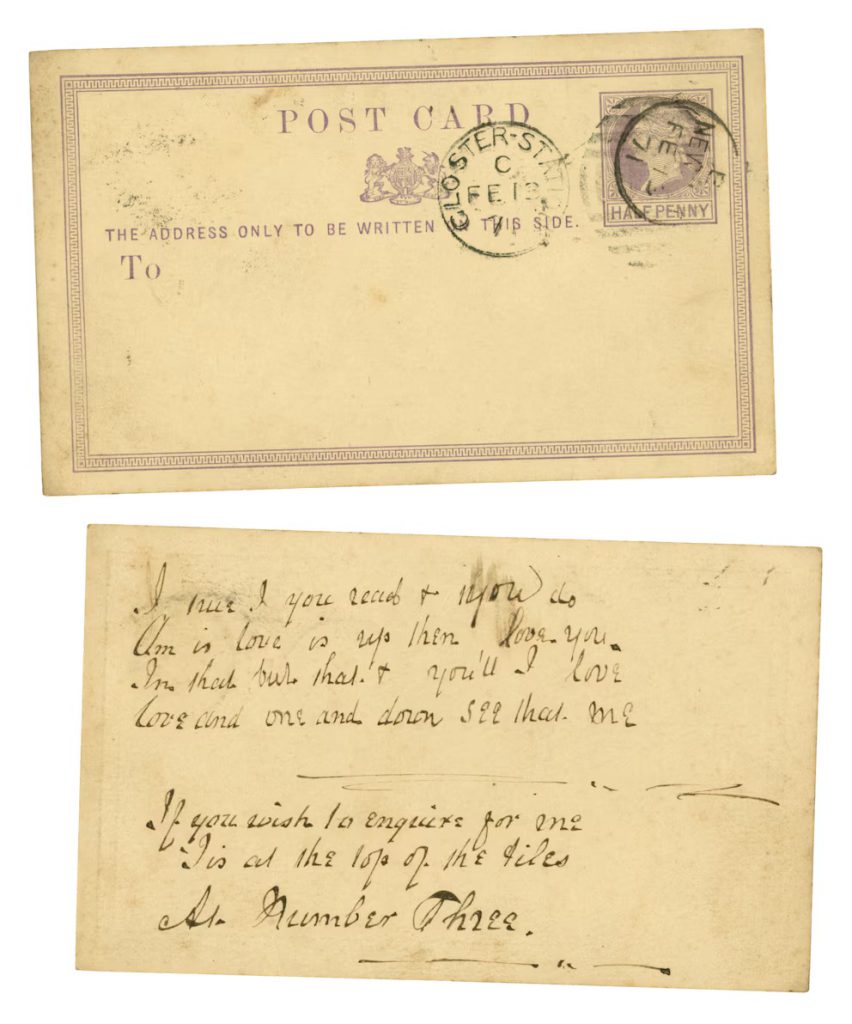 POST CARD
THE ADDRESS ONLY TO BE WRITTEN THIS SIDE.
To
GLOSTER-STAT
C
FE 13
71
HALFPENNY
NEW
FE 13
71
I true I you read & if you do
Am is love is up then love you.
In that but that & you'll I love
love and one and down see that me
If you wish to enquire for me
'Tis at the top of the tiles
At Number Three.